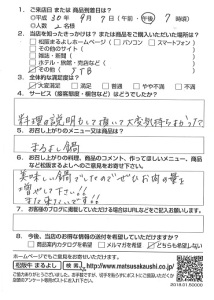 1. ご来店日 または 商品到着日は？
○平成 30 年 9月 7日(午前・午後 7 時頃)
○人数 2名様
2. 当店を知ったきっかけは？または商品をご購入いただいた場所は？
□松阪まるよしホームページ(□パソコン □スマートフォン)
□その他のサイト( )
□雑誌・新聞( )
□ホテル・旅館・売店など( )
☑その他( JTB )
3. 全体的な満足度は？
□大変満足 □満足 □普通 □やや不満 □不満
4. サービス(接客態度・梱包など)はどうでしたか？
料理の説明もして頂いて大変気持ちよかった？
5. お召し上がりのメニュー又は商品は？
まるよし鍋
6. お召し上がりの料理、商品のコメント、作ってほしいメニュー、商品などもございましたらお書きください。
美味しい鍋でしたのでぜひお肉の量を
増やして下さい!!
また来たいです!!
7. お客様のブログに掲載していただける場合はURLなどをご記入お願いします。
8. 今後、当店のお得な情報の送付を希望していますか？
□商品案内のカタログを希望 □メルマガを希望 ☑どちらも希望しない
ホームページでもご意見をお待ちしております。
松阪牛 まるよし 検索 http://www.matsusakaushi.co.jp
2018.01.50000